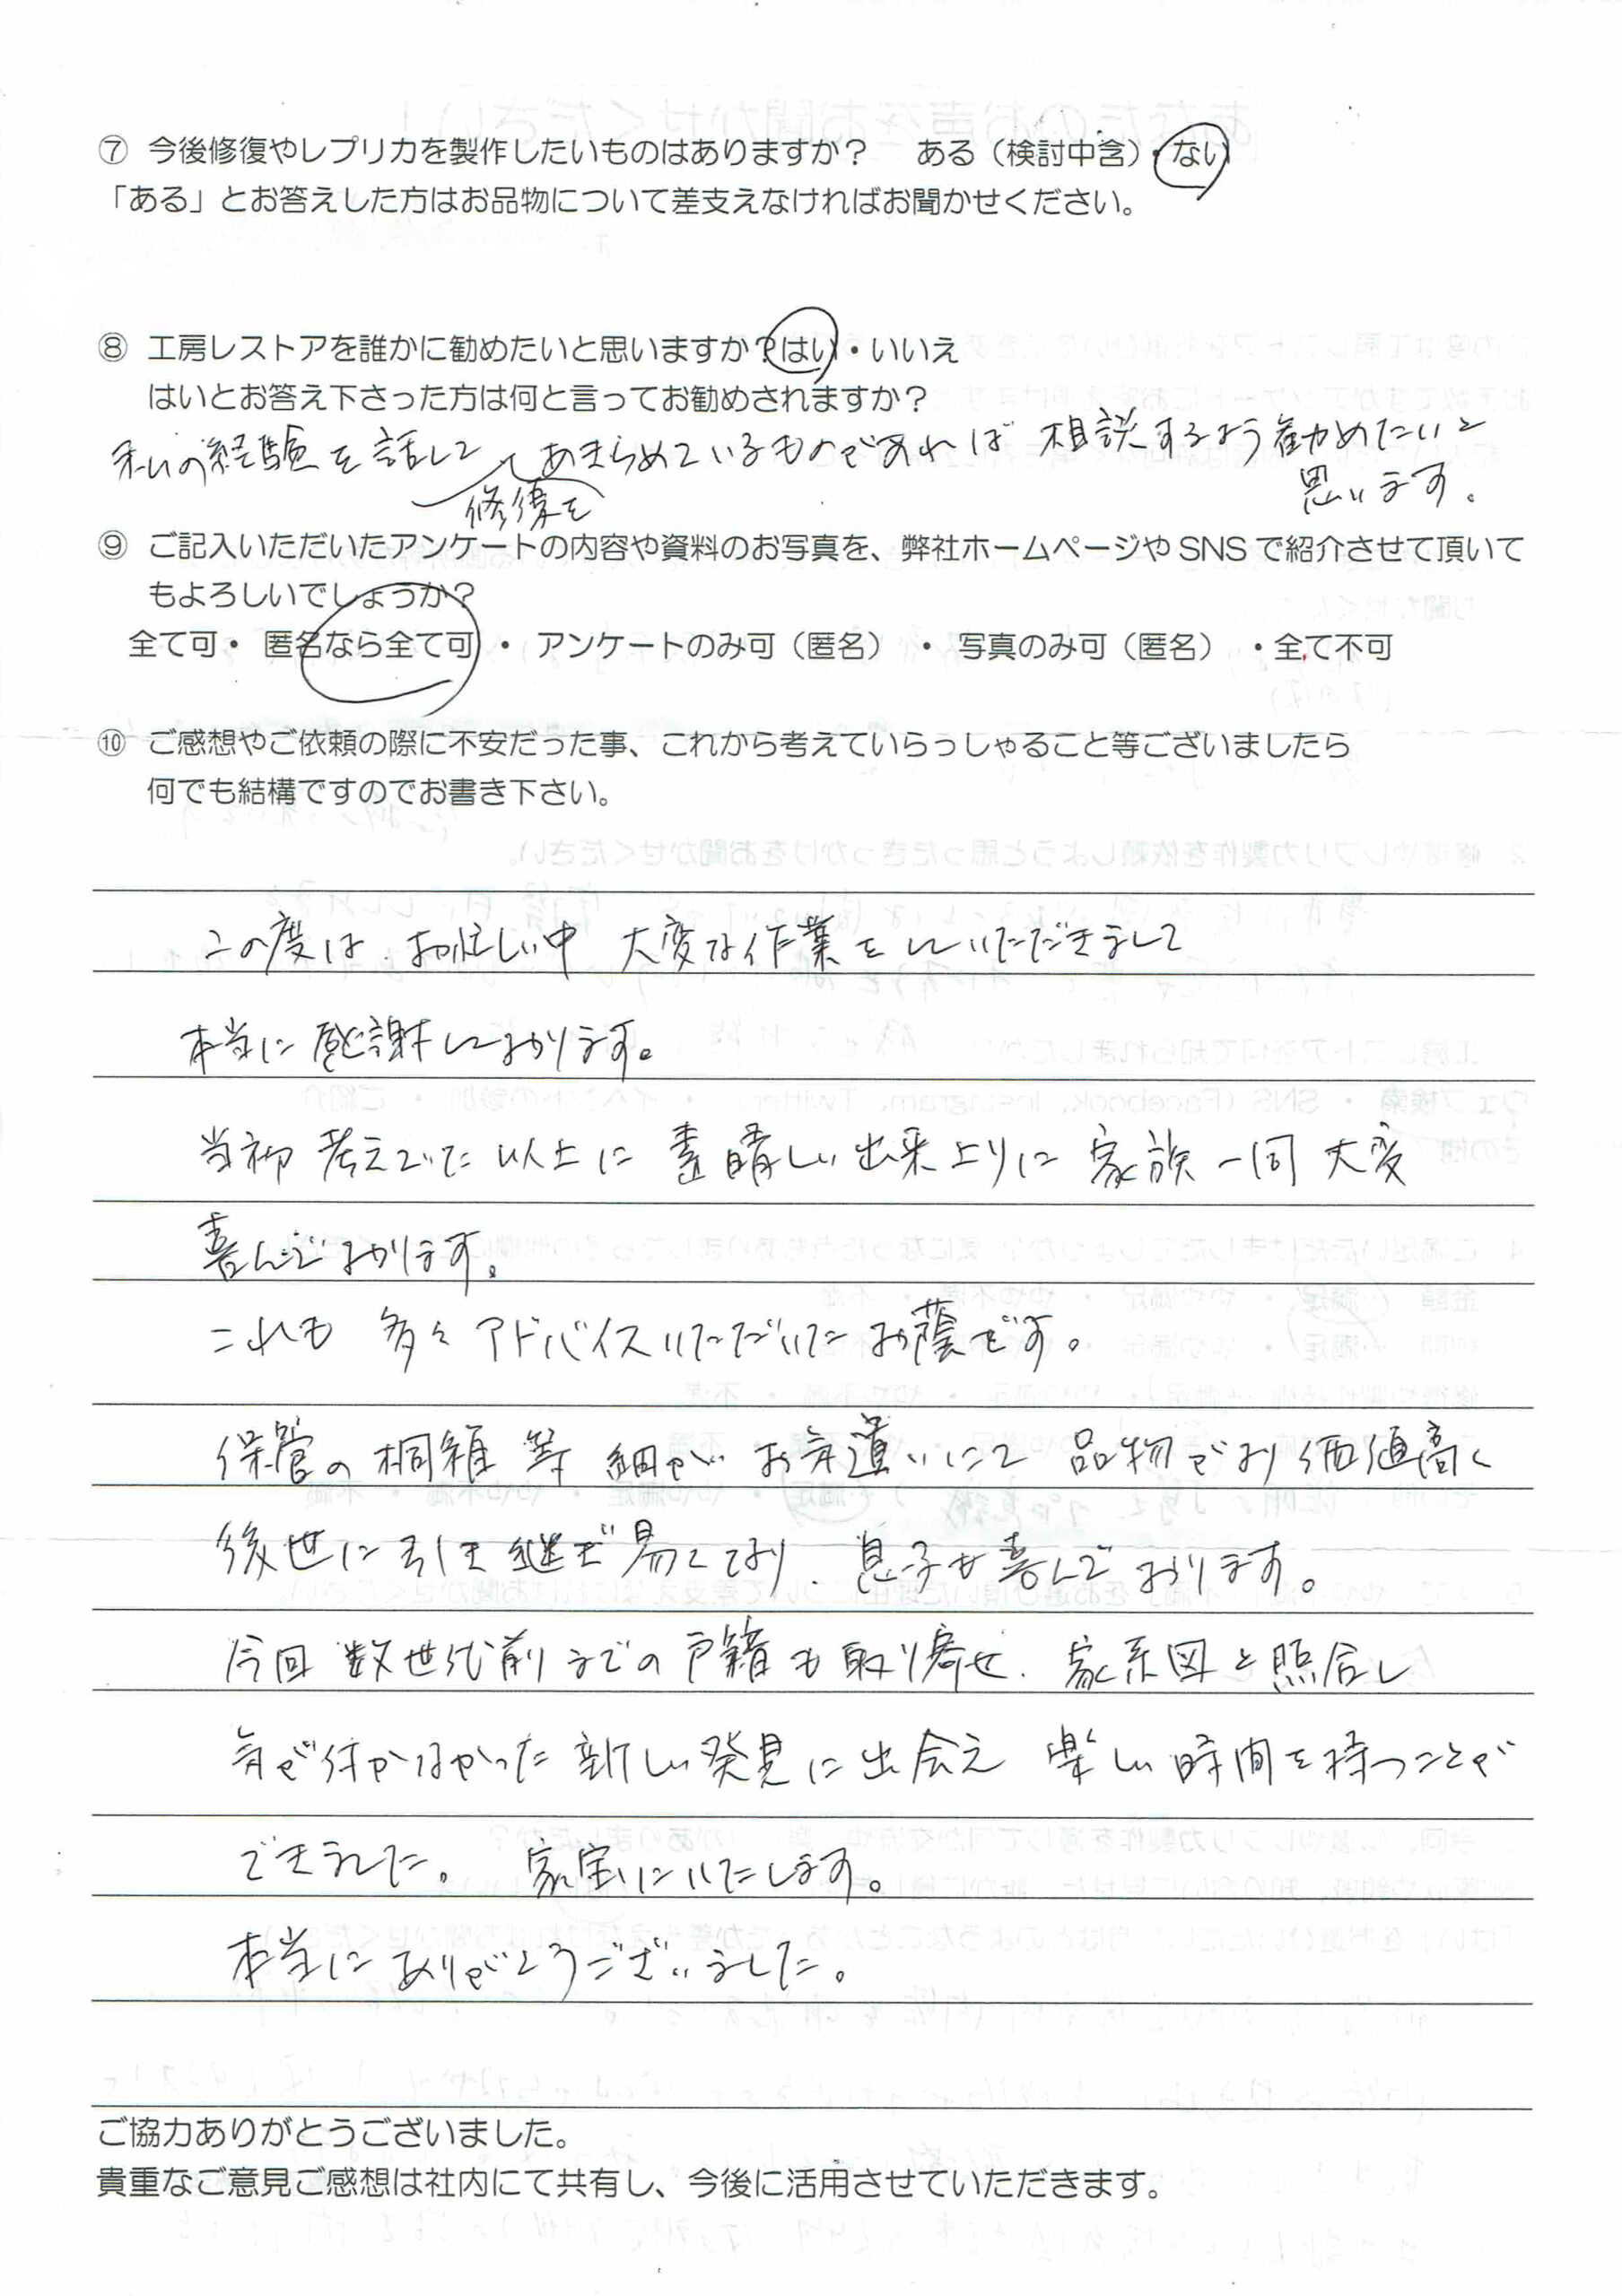 ⑦ 今後修復やレプリカを製作したいものはありますか？　ある（検討中含）・ない
「ある」とお答えした方はお品物について差支えなければお聞かせください。
⑧ 工房レストアを誰かに勧めたいと思いますか？はい・いいえ
はいとお答え下さった方は何と言ってお勧めされますか？
私の経験を話して 修復を あきらめているものであれば 相談するよう勧めたいと
思います。
⑨ ご記入いただいたアンケートの内容や資料のお写真を、弊社ホームページや SNS で紹介させて頂いて
もよろしいでしょうか？
全て可・ 匿名なら全て可 ・ アンケートのみ可（匿名） ・ 写真のみ可（匿名） ・全て不可
⑩ ご感想やご依頼の際に不安だった事、これから考えていらっしゃること等ございましたら
何でも結構ですのでお書き下さい。
この度は お忙しい中 大変な作業をしていただきまして
本当に感謝しております。
当初 考えていた以上に 素晴しい出来上りに 家族一同 大変
喜んでおります。
これも 多々 アドバイスいただいたお蔭です。
保管の桐箱 等 細かいお気遣いにて 品物がより価値高く
後世に引き継ぎ易くなり、息子も喜んでおります。
今回 数世代前までの戸籍も取り寄せ、家系図と照合し
気が付かなかった新しい発見に出会え 楽しい時間を持つことが
できました。 家宝にいたします。
本当にありがとうございました。
ご協力ありがとうございました。
貴重なご意見ご感想は社内にて共有し、今後に活用させていただきます。